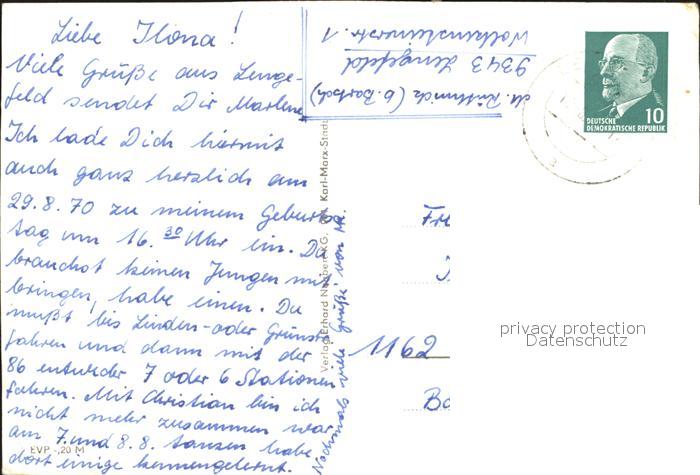 Liebe Ilona!
Viele Grüße aus Lenge-
feld sendet Dir Marlene
Ich lade Dich hiermit
auch ganz herzlich am
29.8.70 zu meinem Geburts-
tag um 16.30 Uhr ein. Du
brauchst keinen Jungen mit
bringen, habe einen. Du
mußt bis Linden- oder Grünstr.
fahren und dann mit der
86 entweder 7 oder 6 Stationen
fahren. Mit Christian bin ich
nicht mehr zusammen war
am 7. und 8.8. tanzen habe
dort einige kennengelernt.
Nochmals viele Grüße von M.
EVP -,20 M
Verlag Erhard Neubert KG, Karl-Marx-Stadt
(b. Bartsch)
9343 Lengefeld
Wolkensteinerstr. 1
DEUTSCHE
DEMOKRATISCHE REPUBLIK
10
Fr
1162
privacy protection
Datenschutz